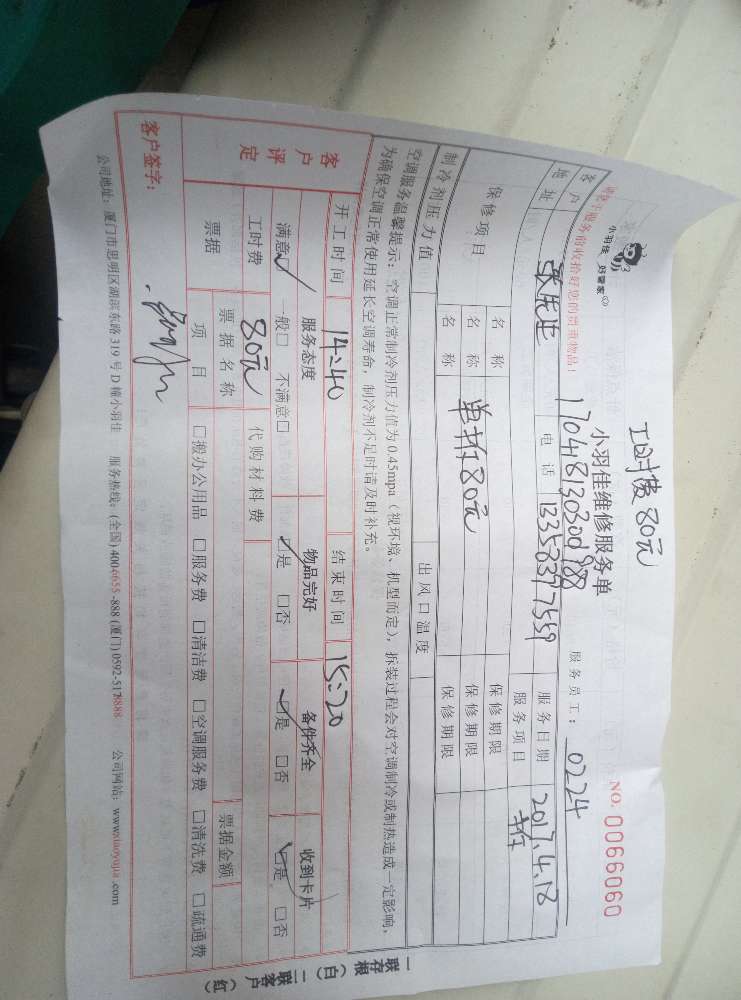 工时费80元
小羽佳 好管家
小羽佳维修服务单
NO. 0066060
17041813030098
服务员工: 0224
客户
地址
电话 13358397559
服务日期 2017.4.18
服务项目
保修项目
名称
保修期限
名称 单拆80元
保修期限
名称
保修期限
制冷剂压力值
出风口温度
空调服务温馨提示: 空调正常制冷剂压力值为0.45mpa (视环境、机型而定), 拆装过程会对空调制冷或制热造成一定影响,
为确保空调正常使用延长空调寿命, 制冷剂不足时请及时补充。
客户评定
开工时间 14:40 结束时间 15:20
服务态度 物品完好 备件齐全 收到卡片
满意☑ 一般□ 不满意□ ☑是 □否 ☑是 □否 ☑是 □否
工时费 80元 代购材料费
票据 票据名称 票据金额
项目 □搬办公用品 □服务费 □清洁费 □空调服务费 □清洗费 □疏通费
客户签字:
公司地址: 厦门市思明区湖滨东路319号D幢小羽佳 服务热线: (全国) 4004655-888 (厦门) 0592-5178888 公司网站: www.xiaoyujia.com
一联存根 (白) 二联客户 (红)